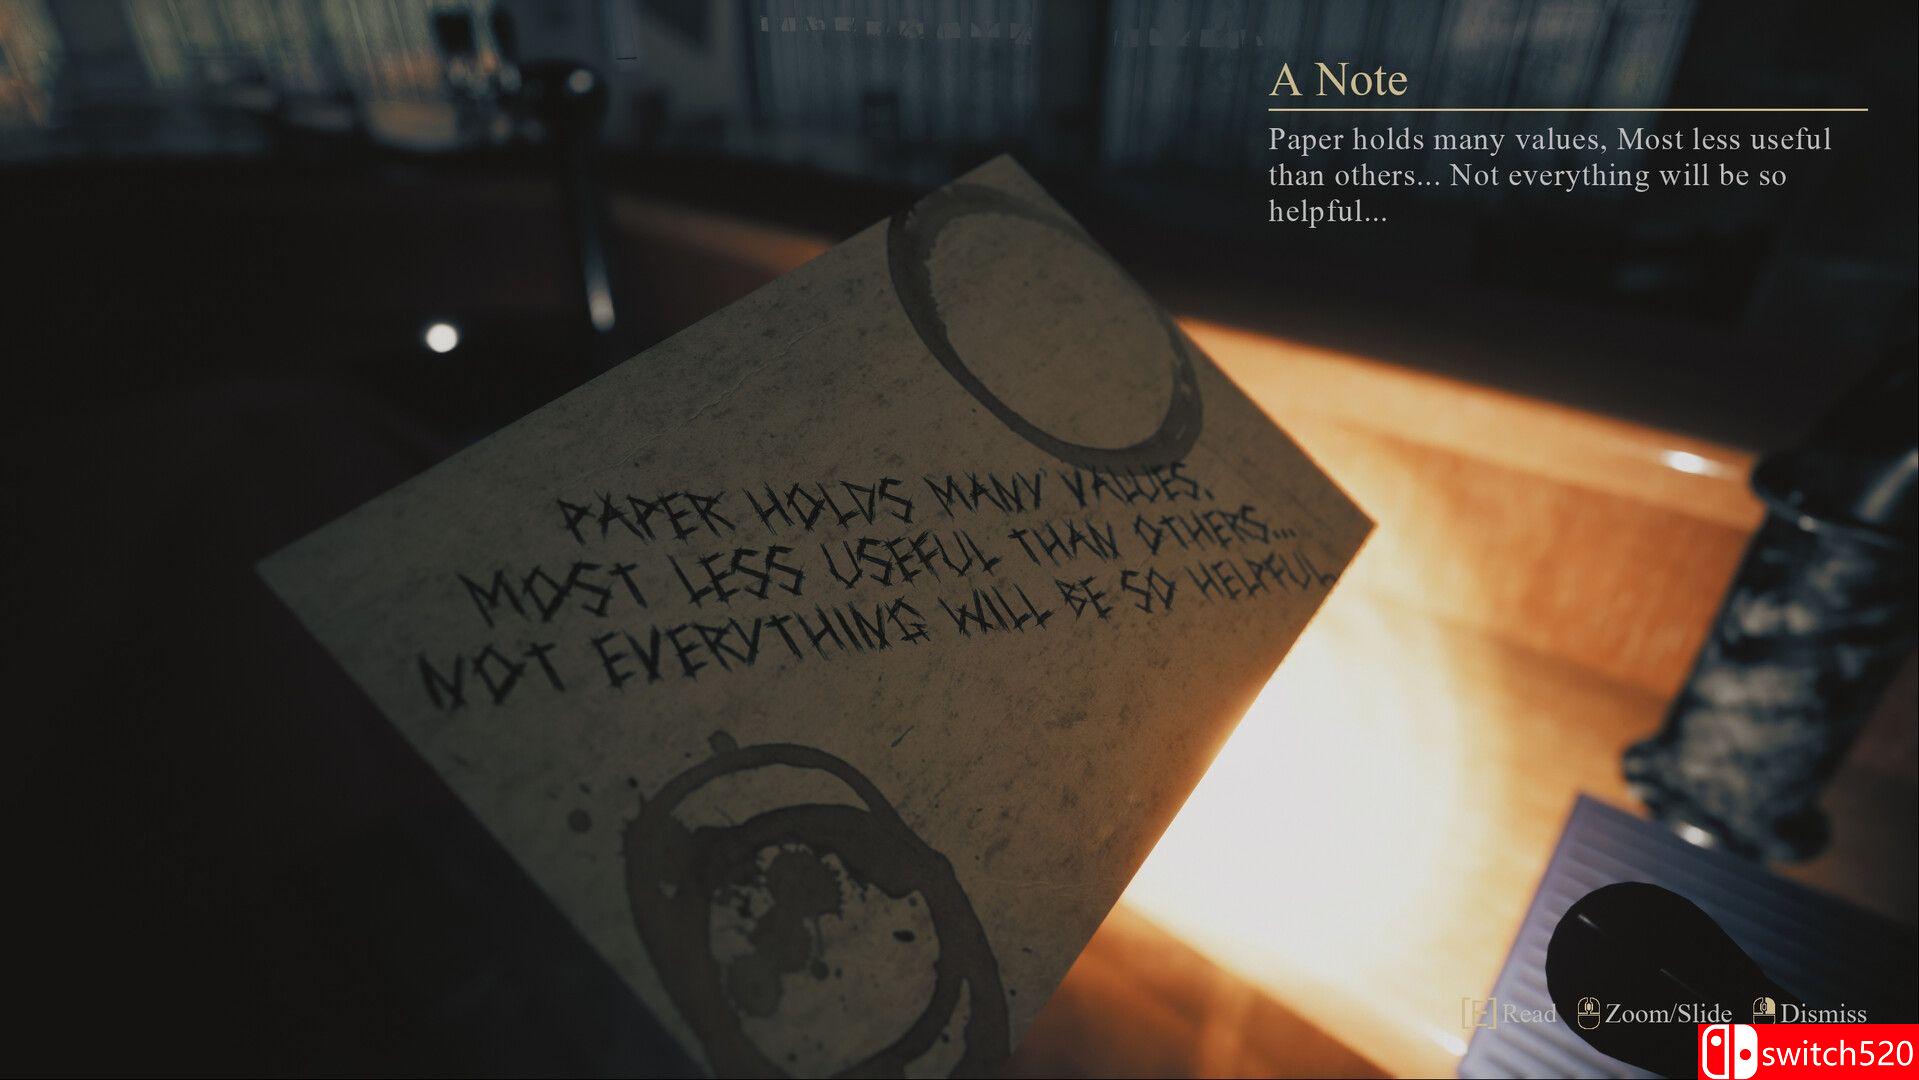 A Note
Paper holds many values, Most less useful
than others... Not everything will be so
helpful...
PAPER HOLDS MANY VALUES,
MOST LESS USEFUL THAN OTHERS...
NOT EVERYTHING WILL BE SO HELPFUL
[E] Read Zoom/Slide Dismiss
switch520